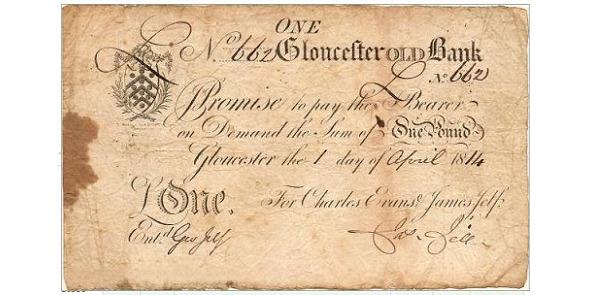 ONE
No 662 Gloucester OLD Bank
No. 662
I Promise to pay the Bearer
on Demand the Sum of One Pound
Gloucester the 1 day of April 1814
£One. For Charles Evans & James Jelf.
Entd. Geo Jelf Jas. Jelf